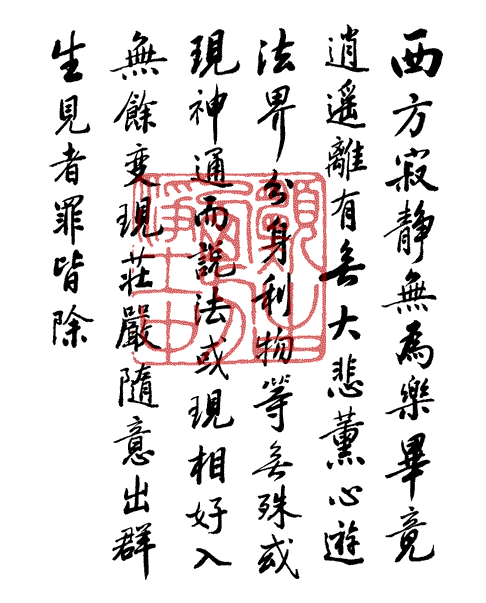 西方寂靜無為樂畢竟
逍遥離有无大悲薰心遊
法界分身利物等无殊或
現神通而說法或現相好入
無餘變現莊嚴隨意出群
生見者罪皆除
願生
西方
淨土中